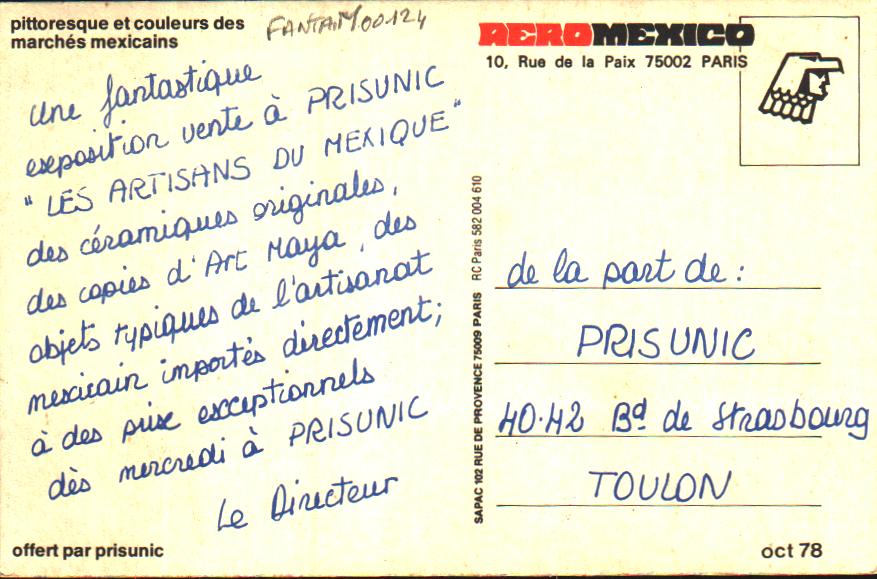 pittoresque et couleurs des
marchés mexicains
FANTAM.00124
Une fantastique
exposition vente à PRISUNIC
"LES ARTISANS DU MEXIQUE"
des céramiques originales,
des copies d'Art Maya, des
objets typiques de l'artisanat
mexicain importés directement;
à des prix exceptionnels
dès mercredi à PRISUNIC
Le Directeur
offert par prisunic
SAPAC 102 RUE DE PROVENCE 75009 PARIS RC Paris 582 004 610
AEROMEXICO
10, Rue de la Paix 75002 PARIS
de la part de :
PRISUNIC
40.42 Bd de Strasbourg
TOULON
oct 78